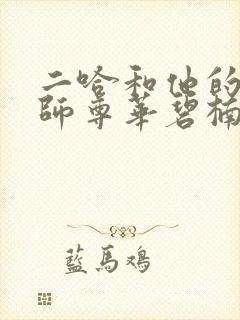 二哈和他的
師尊華碧楠
藍馬鴻